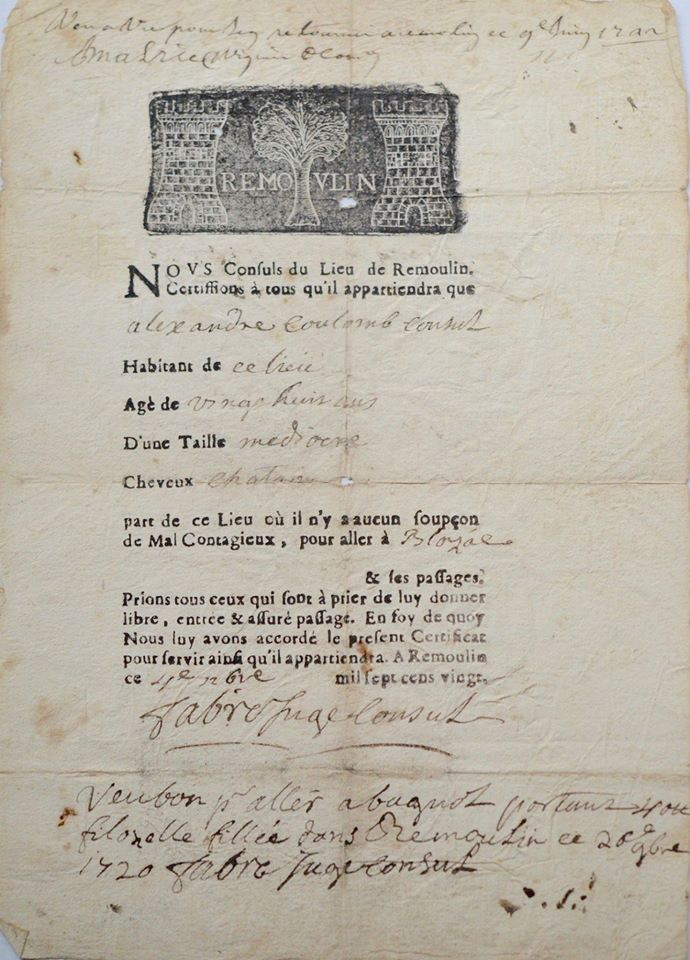 REMOVLIN
NOVS Conſuls du Lieu de Remoulin.
Certiffions à tous qu'il appartiendra que
alexandre coulomb consul
Habitant de ce lieu
Agè de vingt huit ans
D'une Taille mediocre
Cheveux chatain
part de ce Lieu où il n'y a aucun ſoupçon
de Mal Contagieux, pour aller à
& ſes paſſages.
Prions tous ceux qui ſont à prier de luy donner
libre, entrée & aſſuré paſſage. En foy de quoy
Nous luy avons accordé le preſent Certificat
pour ſervir ainſi qu'il appartiendra. A Remoulin
ce 4e mil ſept cens vingt.
fabre Juge Consul
Veu bon pr aller a portant
fillée dans Remoulin ce
1720 fabre Juge consul